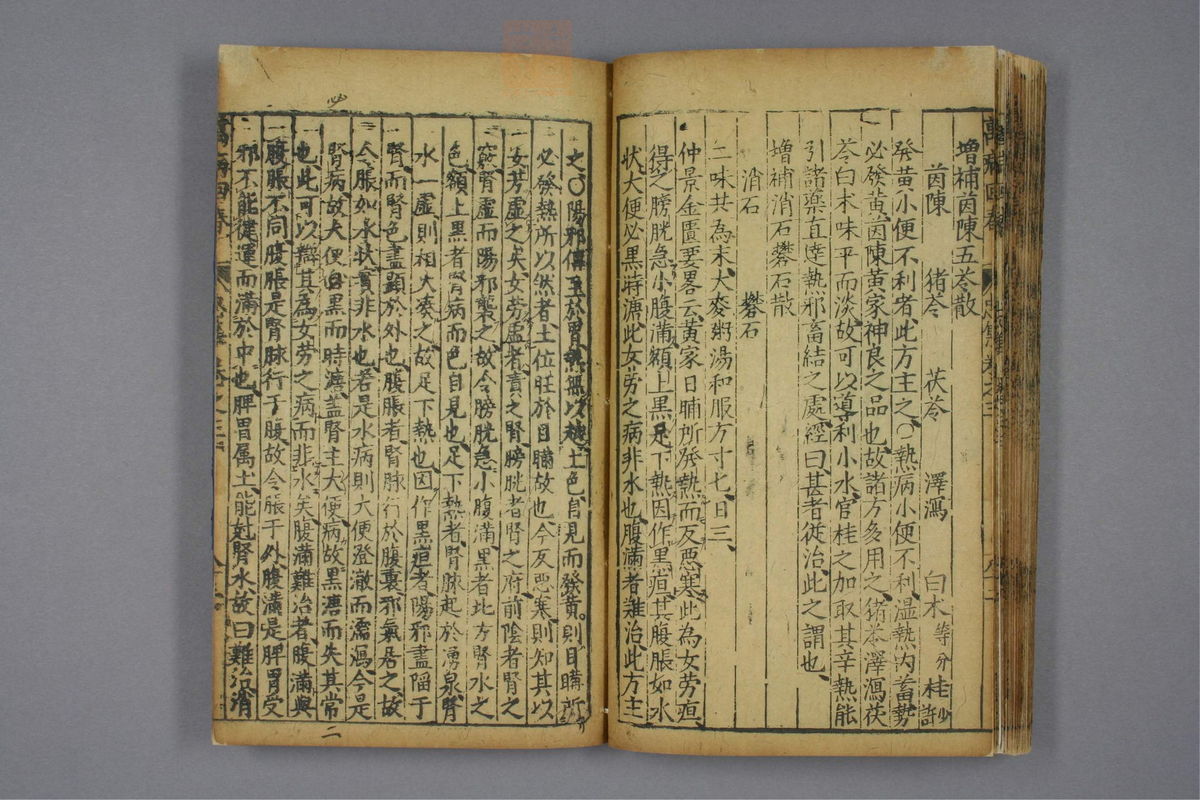 增補茵陳五苓散
茵陳 猪苓 茯苓 澤瀉 白朮 等分 桂 少許
發黃小便不利者此方主之○熱病小便不利濕熱內蓄勢
必發黃茵陳黃家神良之品也故諸方多用之猪苓澤瀉茯
苓白朮味平而淡故可以導利小水官桂之加取其辛熱能
引諸藥直達熱邪畜結之處經曰甚者從治此之謂也
增補消石礬石散
消石 礬石
二味共為末大麥粥湯和服方寸匕日三
仲景金匱要畧云黃家日晡所發熱而反惡寒此為女勞疸
得之膀胱急小腹滿額上黑足下熱因作黑疸其腹脹如水
狀大便必黑時溏此女勞之病非水也腹滿者難治此方主
之○陽邪傳至於胃土色自見而發黃則日晡所
必發熱所以然者土位旺於日晡故也今反惡寒則知其以
女勞虛之矣女勞虛者責之腎膀胱者腎之府前陰者腎之
竅腎虛而陽邪襲之故令膀胱急小腹滿黑者北方腎水之
色額上黑者腎病而色自見也足下熱者腎脉起於湧泉腎
水一虛則相火凑之故足下熱也因作黑疸者陽邪盡陷于
腎而腎色盡顯於外也腹脹者腎脉行於腹裏邪氣居之故
令脹如水狀實非水也若是水病則大便澄澈而濡瀉今是
腎病故大便自黑而時溏盖腎主大便病故黑溏而失其常
也此可以辯其為女勞之病而非水矣腹滿難治者腹滿與
腹脹不同腹脹是腎脉行于腹故令脹于外腹滿是脾胃受
邪不能健運而滿於中也脾胃属土能尅腎水故曰難治消